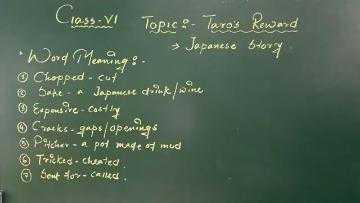 Class-VI Topic:- Taro's Reward
→ Japanese Story.
* Word Meaning:-
① Chopped - cut
② Sake - a Japanese drink/wine
③ Expensive - costly
④ Cracks - gaps/openings
⑤ Pitcher - a pot made of mud
⑥ Tricked - cheated.
⑦ Sent for - called.